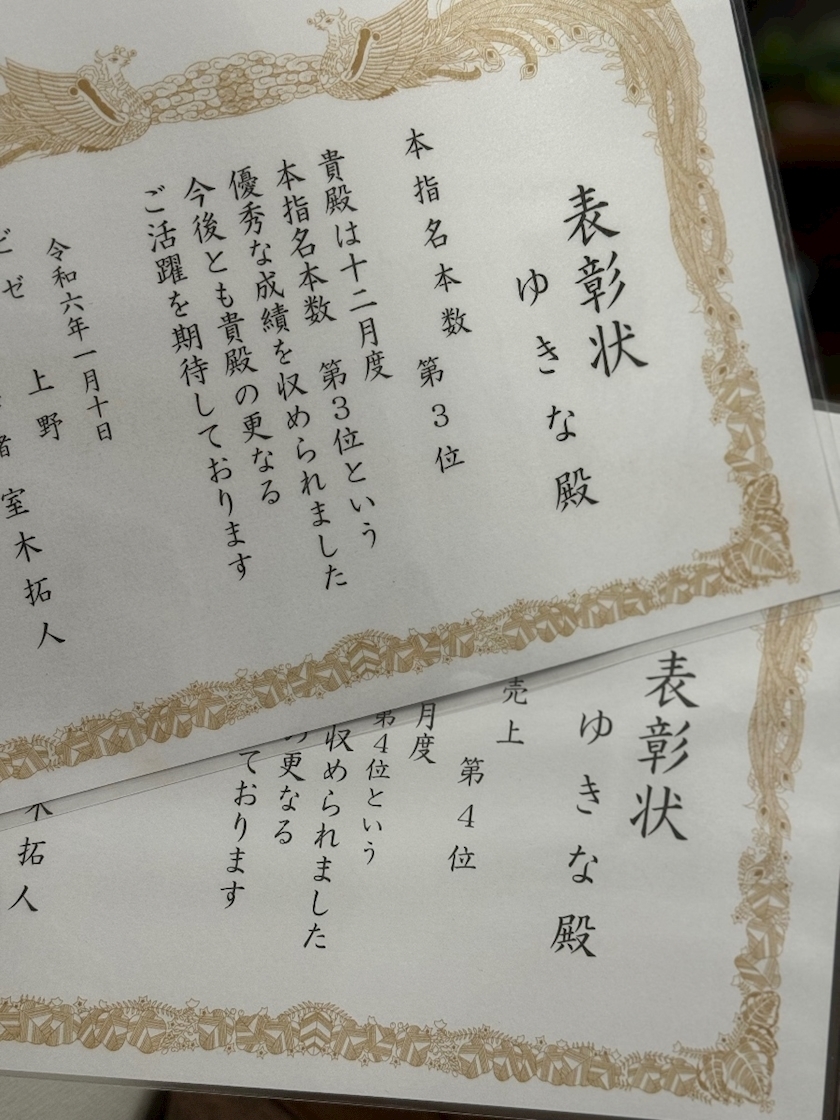 表彰状
ゆきな殿
本指名本数 第3位
貴殿は十二月度
本指名本数 第3位という
優秀な成績を収められました
今後とも貴殿の更なる
ご活躍を期待しております
令和六年一月十日
ビゼ 上野
者 室木拓人
表彰状
ゆきな殿
売上 第4位
月度
第4位という
収められました
の更なる
ております
木拓人